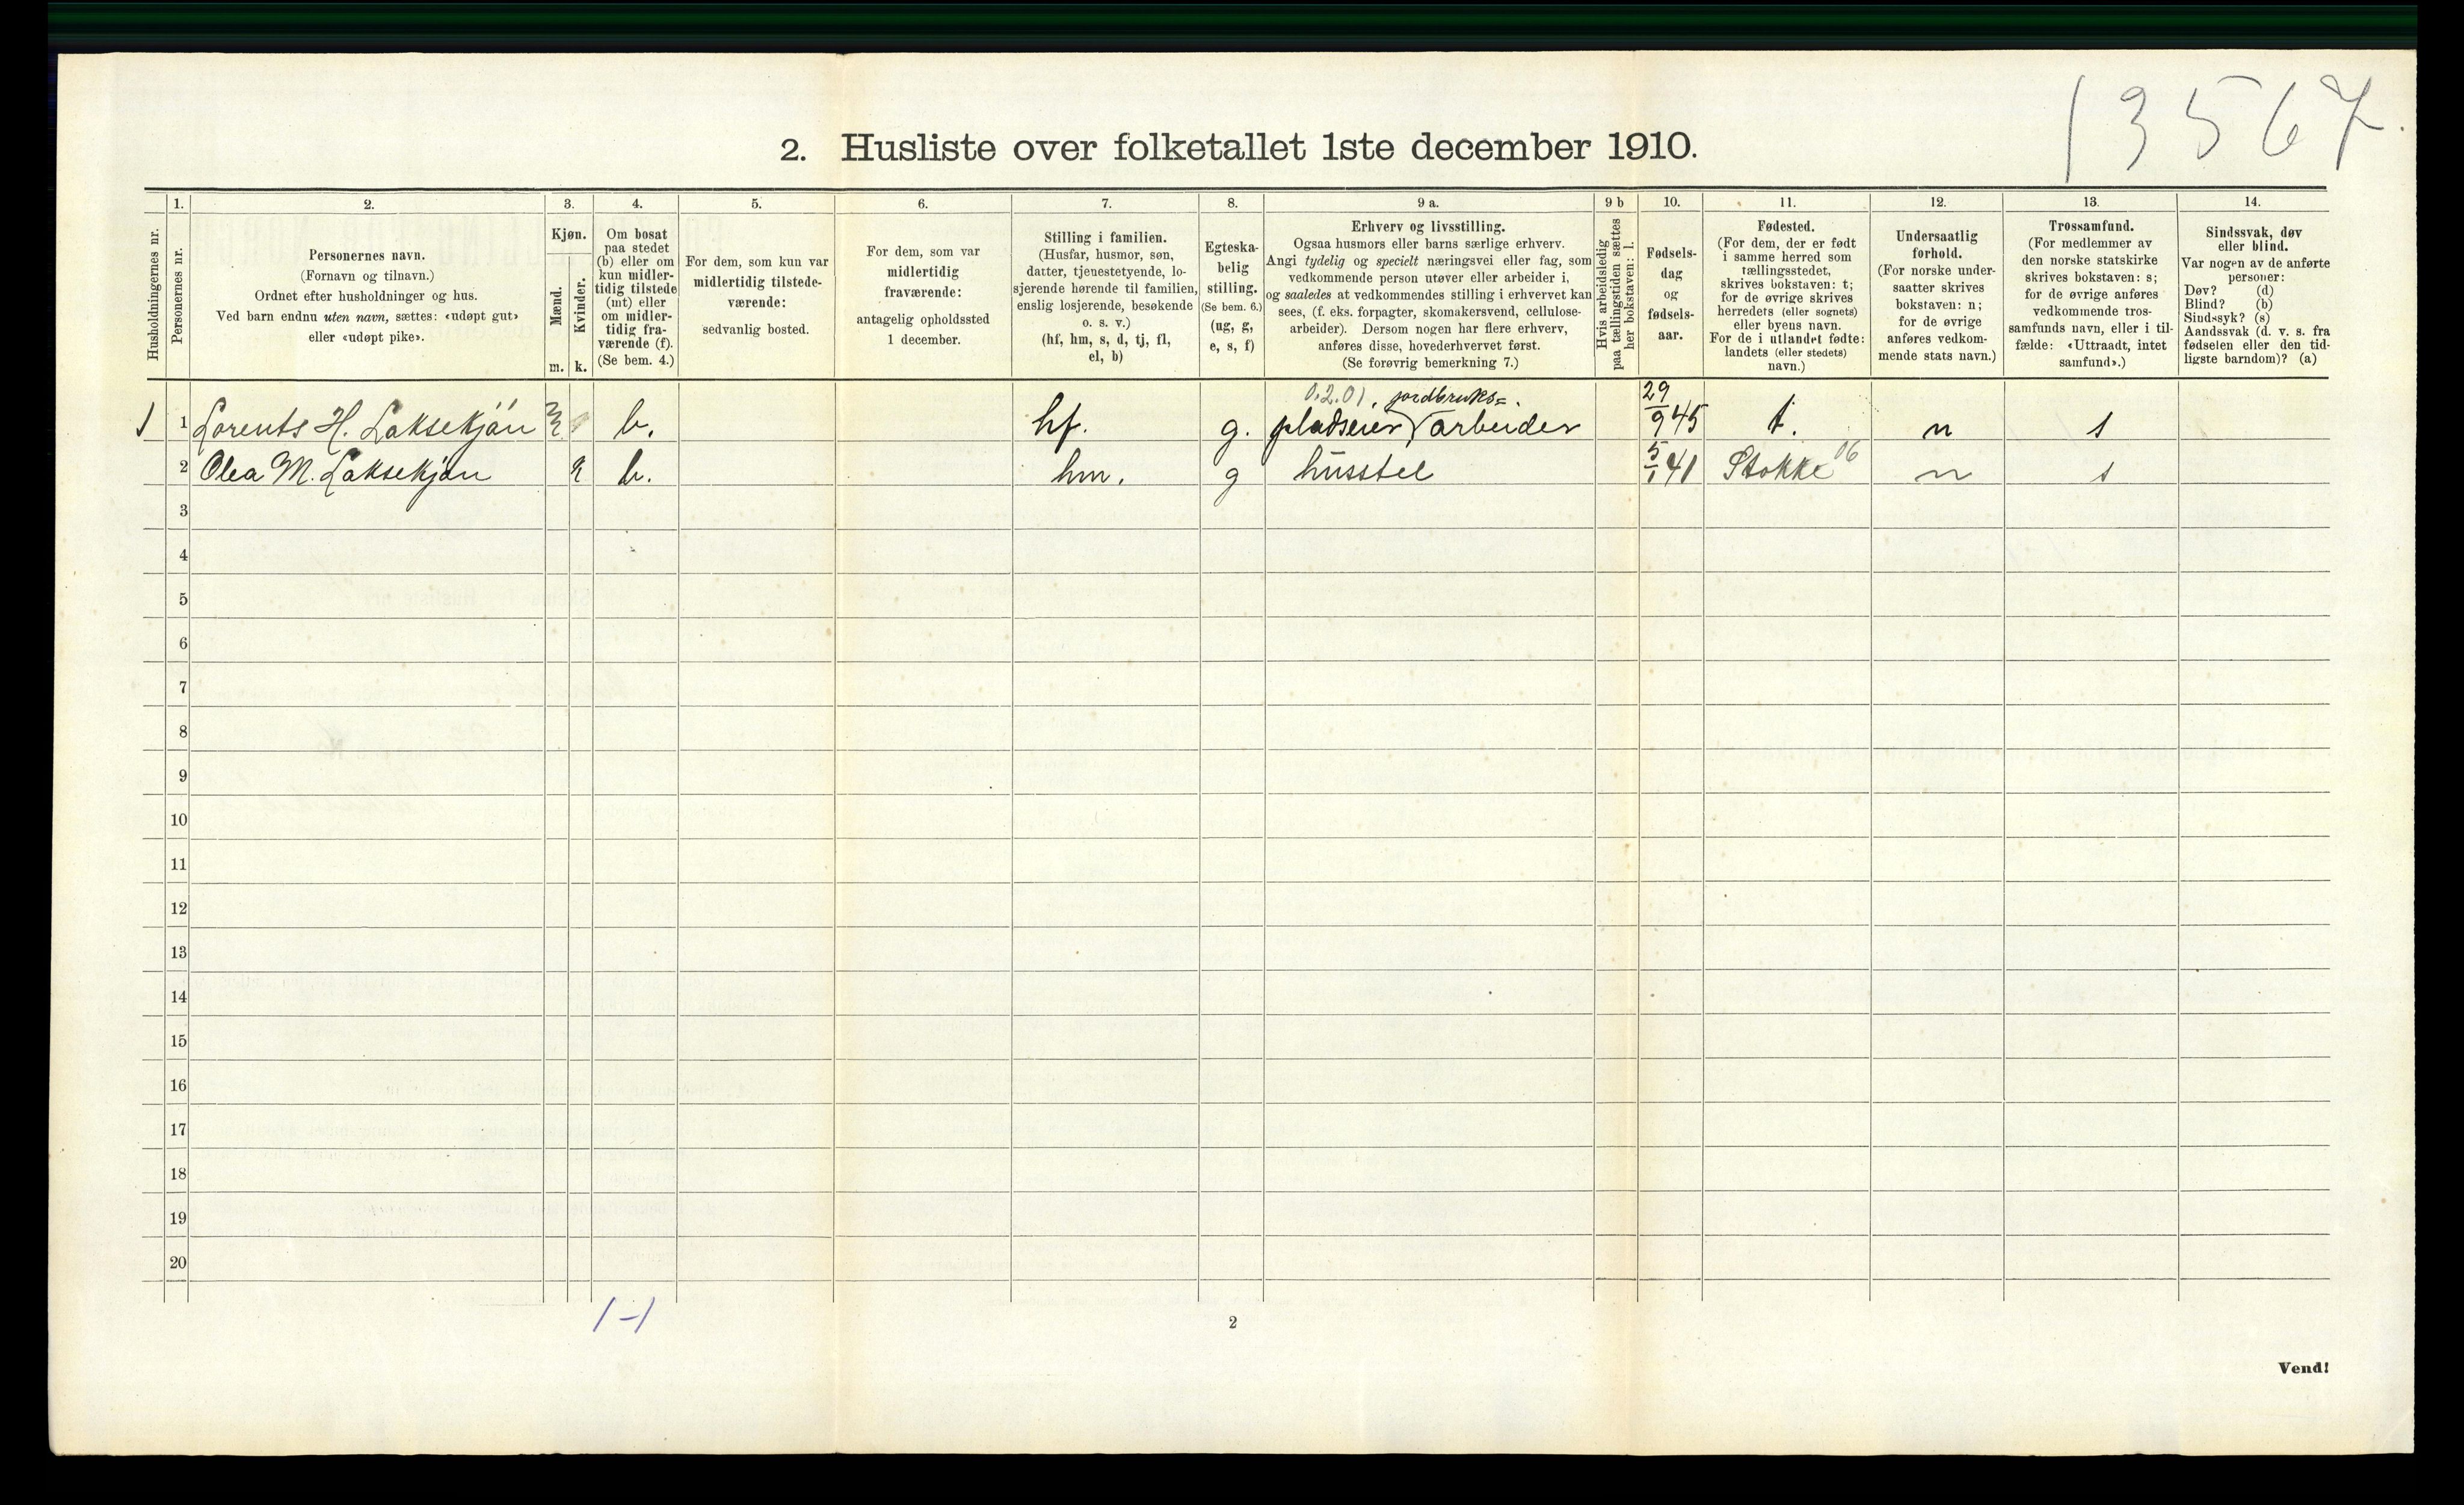 13567.
2. Husliste over folketallet 1ste december 1910.
Husholdningernes nr.
1.
Personernes nr.
2.
Personernes navn.
(Fornavn og tilnavn.)
Ordnet efter husholdninger og hus.
Ved barn endnu uten navn, sættes: «udøpt gut»
eller «udøpt pike».
3.
Kjøn.
Mænd.
Kvinder.
m. k.
4.
Om bosat
paa stedet
(b) eller om
kun midler-
tidig tilstede
(mt) eller
om midler-
tidig fra-
værende (f).
(Se bem. 4.)
5.
For dem, som kun var
midlertidig tilstede-
værende:
sedvanlig bosted.
6.
For dem, som var
midlertidig
fraværende:
antagelig opholdssted
1 december.
7.
Stilling i familien.
(Husfar, husmor, søn,
datter, tjenestetyende, lo-
sjerende hørende til familien,
enslig losjerende, besøkende
o. s. v.)
(hf, hm, s, d, tj, fl,
el, b)
8.
Egteska-
belig
stilling.
(Se bem. 6.)
(ug, g,
e, s, f)
9 a.
Erhverv og livsstilling.
Ogsaa husmors eller barns særlige erhverv.
Angi tydelig og specielt næringsvei eller fag, som
vedkommende person utøver eller arbeider i,
og saaledes at vedkommendes stilling i erhvervet kan
sees, (f. eks. forpagter, skomakersvend, cellulose-
arbeider). Dersom nogen har flere erhverv,
anføres disse, hovederhvervet først.
(Se forøvrig bemerkning 7.)
9 b
Hvis arbeidsledig
paa tællingstiden sættes
her bokstaven: l.
10.
Fødsels-
dag
og
fødsels-
aar.
11.
Fødested.
(For dem, der er født
i samme herred som
tællingsstedet,
skrives bokstaven: t;
for de øvrige skrives
herredets (eller sognets)
eller byens navn.
For de i utlandet fødte:
landets (eller stedets)
navn.)
12.
Undersaatlig
forhold.
(For norske under-
saatter skrives
bokstaven: n;
for de øvrige
anføres vedkom-
mende stats navn.)
13.
Trossamfund.
(For medlemmer av
den norske statskirke
skrives bokstaven: s;
for de øvrige anføres
vedkommende tros-
samfunds navn, eller i til-
fælde: «Uttraadt, intet
samfund».)
14.
Sindssvak, døv
eller blind.
Var nogen av de anførte
personer:
Døv? (d)
Blind? (b)
Sindssyk? (s)
Aandssvak (d. v. s. fra
fødselen eller den tid-
ligste barndom)? (a)
0.2.01. jordbruks=
1 1 Lorents H. Laksekjøn b. hf. g. pladseier, arbeider 29/9 45 t. n s
2 Olea M. Laksekjøn k b. hm. g husstel 5/1 41 Stokke 06 n s
3
4
5
6
7
8
9
10
11
12
13
14
15
16
17
18
19
20
1-1
2
Vend!